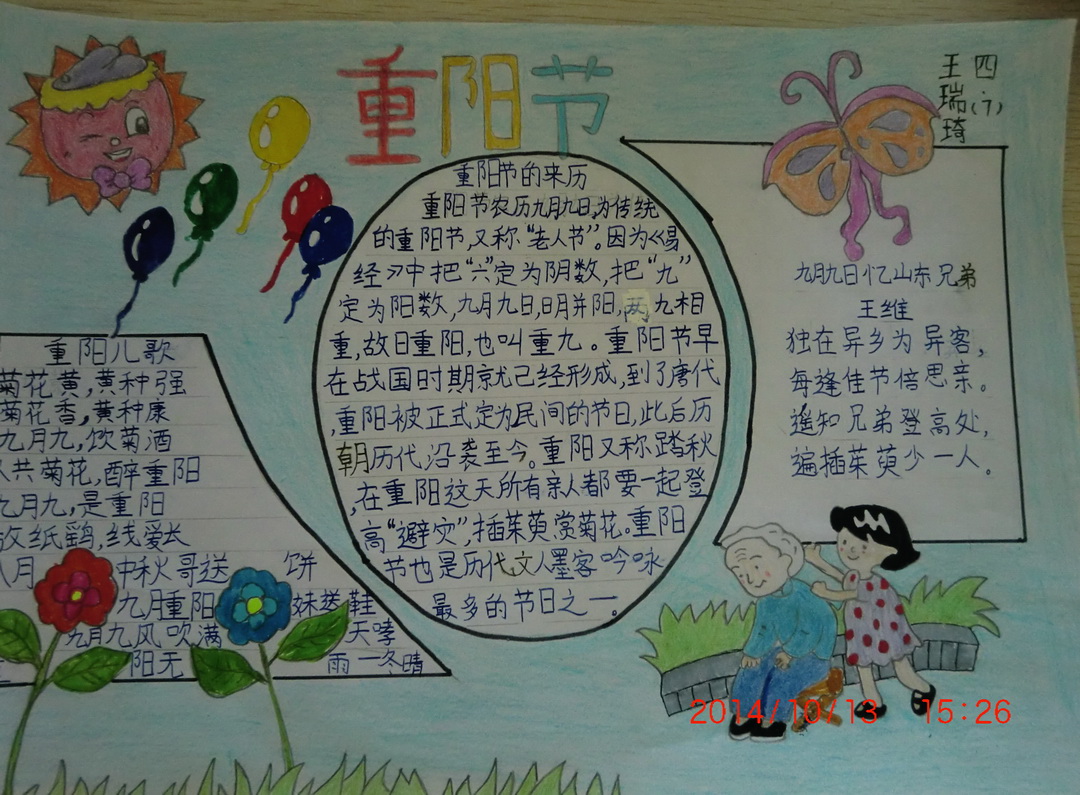 重阳节
四(7)
王瑞琦
重阳节的来历
重阳节农历九月九日,为传统
的重阳节,又称“老人节”。因为《易
经》中把“六”定为阴数,把“九”
定为阳数,九月九日,日月并阳,两九相
重,故日重阳,也叫重九。重阳节早
在战国时期就己经形成,到了唐代
,重阳被正式定为民间的节日,此后历
朝历代沿袭至今。重阳又称踏秋
,在重阳这天所有亲人都要一起登
高“避灾”,插茱萸,赏菊花。重阳
节也是历代文人墨客吟咏
最多的节日之一。
九月九日忆山东兄弟
王维
独在异乡为异客,
每逢佳节倍思亲。
遥知兄弟登高处,
遍插茱萸少一人。
重阳儿歌
菊花黄,黄种强
菊花香,黄种康
九月九,饮菊酒
人共菊花,醉重阳
九月九,是重阳
放纸鹞,线爱长
八月 中秋哥送 饼
九月重阳 妹送鞋
九月九风吹满 天哮
阳无 雨一冬晴
2014/10/13 15:26